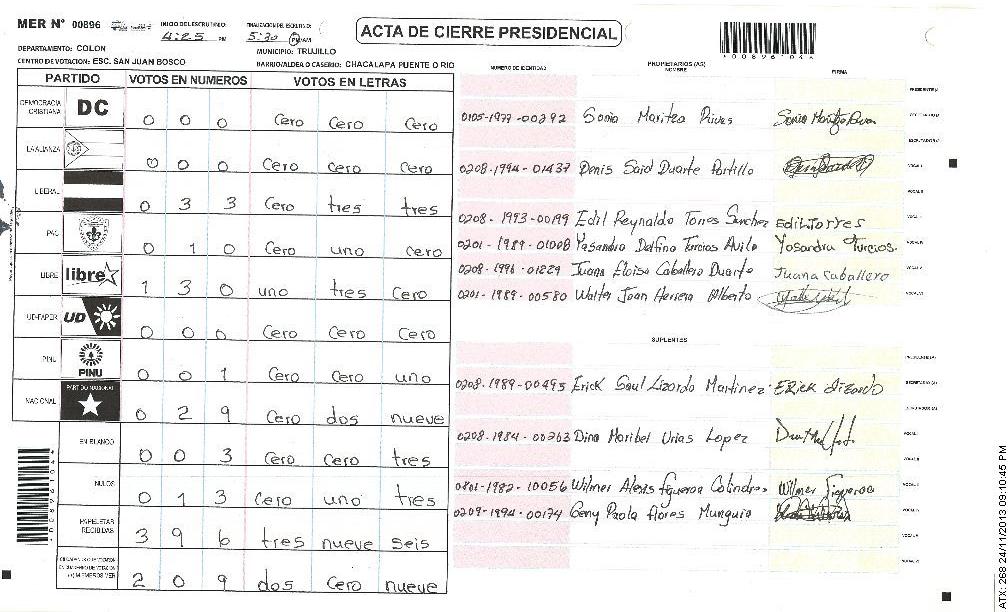 MER N° 00896
INICIO DEL ESCRUTINIO:
4:25 PM
FINALIZACION DEL ESCRUTINIO:
5:30 PM/AM
ACTA DE CIERRE PRESIDENCIAL
*00896104*
DEPARTAMENTO: COLON
MUNICIPIO: TRUJILLO
CENTRO DE VOTACION: ESC. SAN JUAN BOSCO
BARRIO/ALDEA O CASERIO: CHACALAPA PUENTE O RIO
PARTIDO VOTOS EN NUMEROS VOTOS EN LETRAS
DEMOCRACIA CRISTIANA DC 0 0 0 Cero Cero Cero
LA ALIANZA 0 0 0 Cero Cero Cero
LIBERAL 0 3 3 Cero tres tres
PAC 0 1 0 Cero uno cero
LIBRE libre 1 3 0 uno tres Cero
UD-FAPER UD 0 0 0 Cero Cero Cero
PINU PINU 0 0 1 Cero Cero uno
NACIONAL PARTIDO NACIONAL 0 2 9 Cero dos nueve
EN BLANCO 0 0 3 Cero Cero tres
NULOS 0 1 3 Cero uno tres
PAPELETAS RECIBIDAS 3 9 6 tres nueve seis
2 0 9 dos Cero nueve
NUMERO DE IDENTIDAD
PROPIETARIOS (AS)
NOMBRE
FIRMA
0105-1979-00292 Sonia Maritza Rivas
0208-1994-01437 Denis Said Duarte Portillo
0208-1993-00199 Edil Reynaldo Torres Sanchez Edil Torres
0201-1989-01008 Yosandra Delfina Turcios Avila Yosandra Turcios.
0208-1996-01229 Juana Eloisa Caballero Duarte Juana Caballero
0201-1989-00580 Walter Joan Herrera Alberto
SUPLENTES
0208-1989-00495 Erick Saul Lizardo Martinez Erick Lizardo
0208-1984-00263 Dina Maribel Urias Lopez
0801-1982-10056 Wilmer Alexis Figueroa Colindres Wilmer Figueroa
0209-1994-00174 Geny Paola Flores Munguia
ATX: 268 24/11/2013 09:10:45 PM